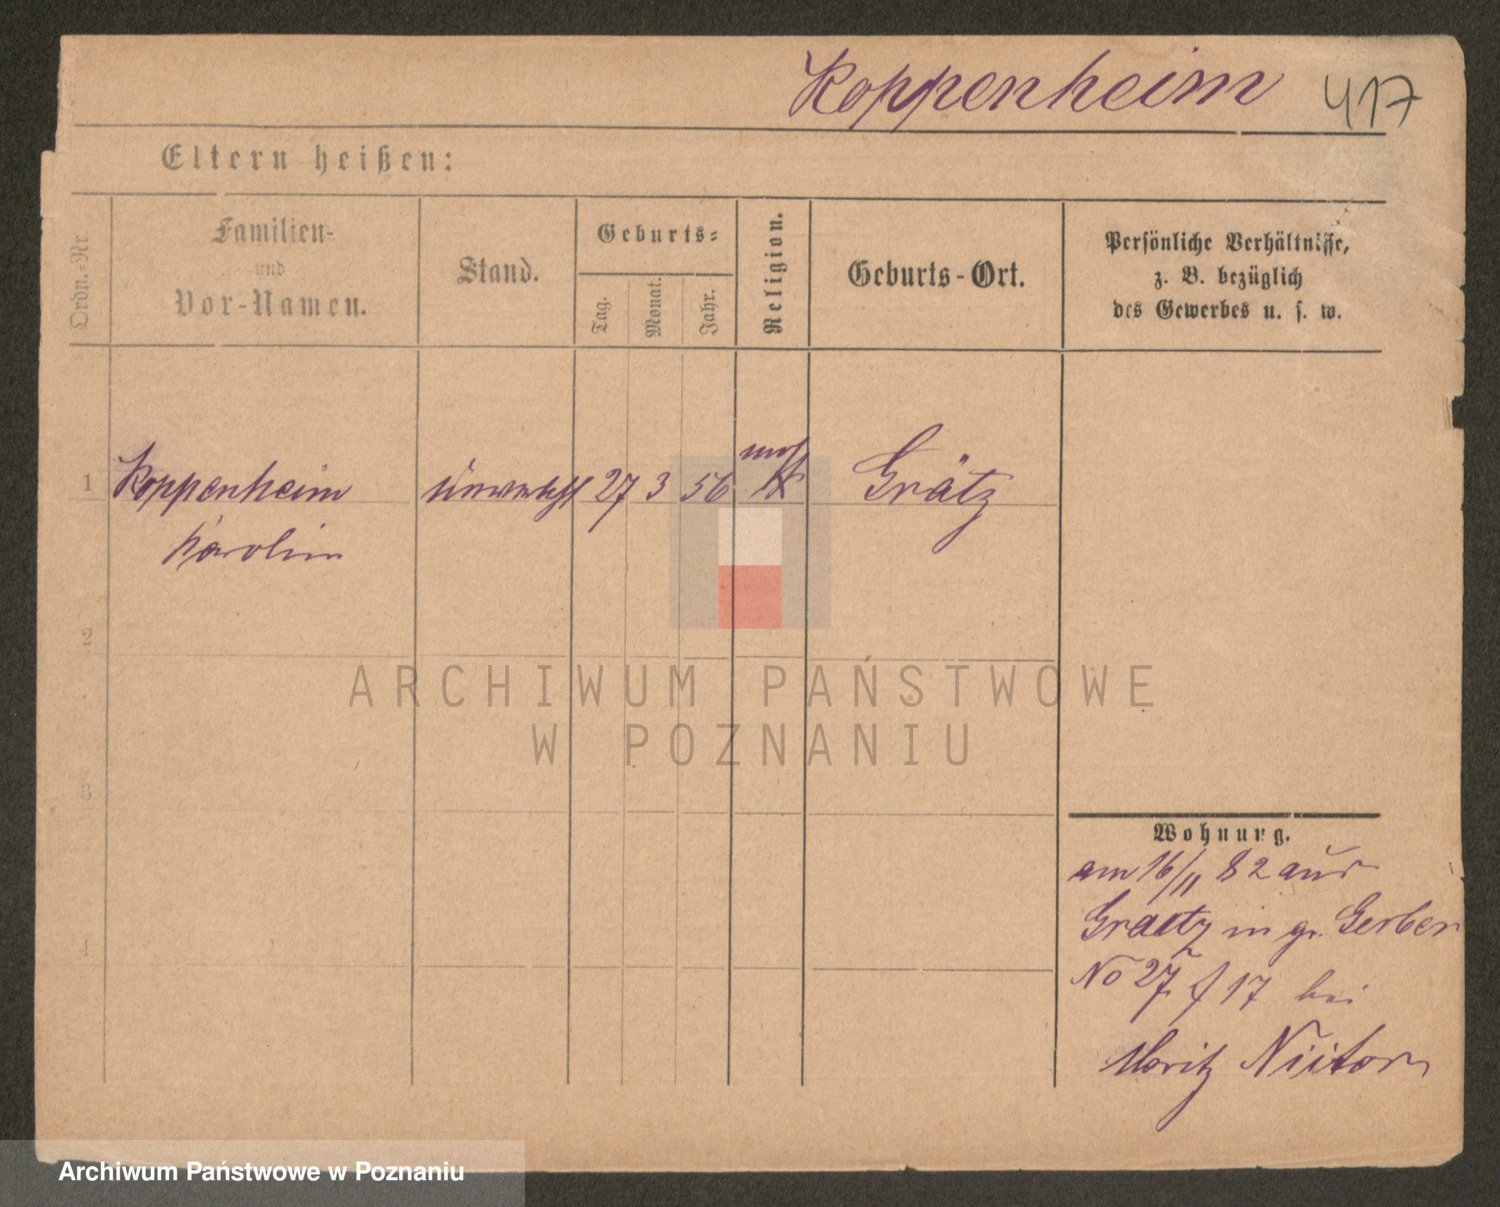 Koppenheim 417
Eltern heißen:
Ordn.-Nr.
Familien-
und
Vor-Namen.
Stand.
Geburts-
Tag.
Monat.
Jahr.
Religion.
Geburts-Ort.
Persönliche Verhältnisse,
z. B. bezüglich
des Gewerbes u. s. w.
mos
1 Koppenheim unverehl 27 3 56 Grätz
Karolin
2
3
4
ARCHIWUM PAŃSTWOWE
W POZNANIU
Wohnung.
am 16/11 82 aus
Graetz in gr. Gerber
No 27 f 17 bei
Moritz
Archiwum Państwowe w Poznaniu